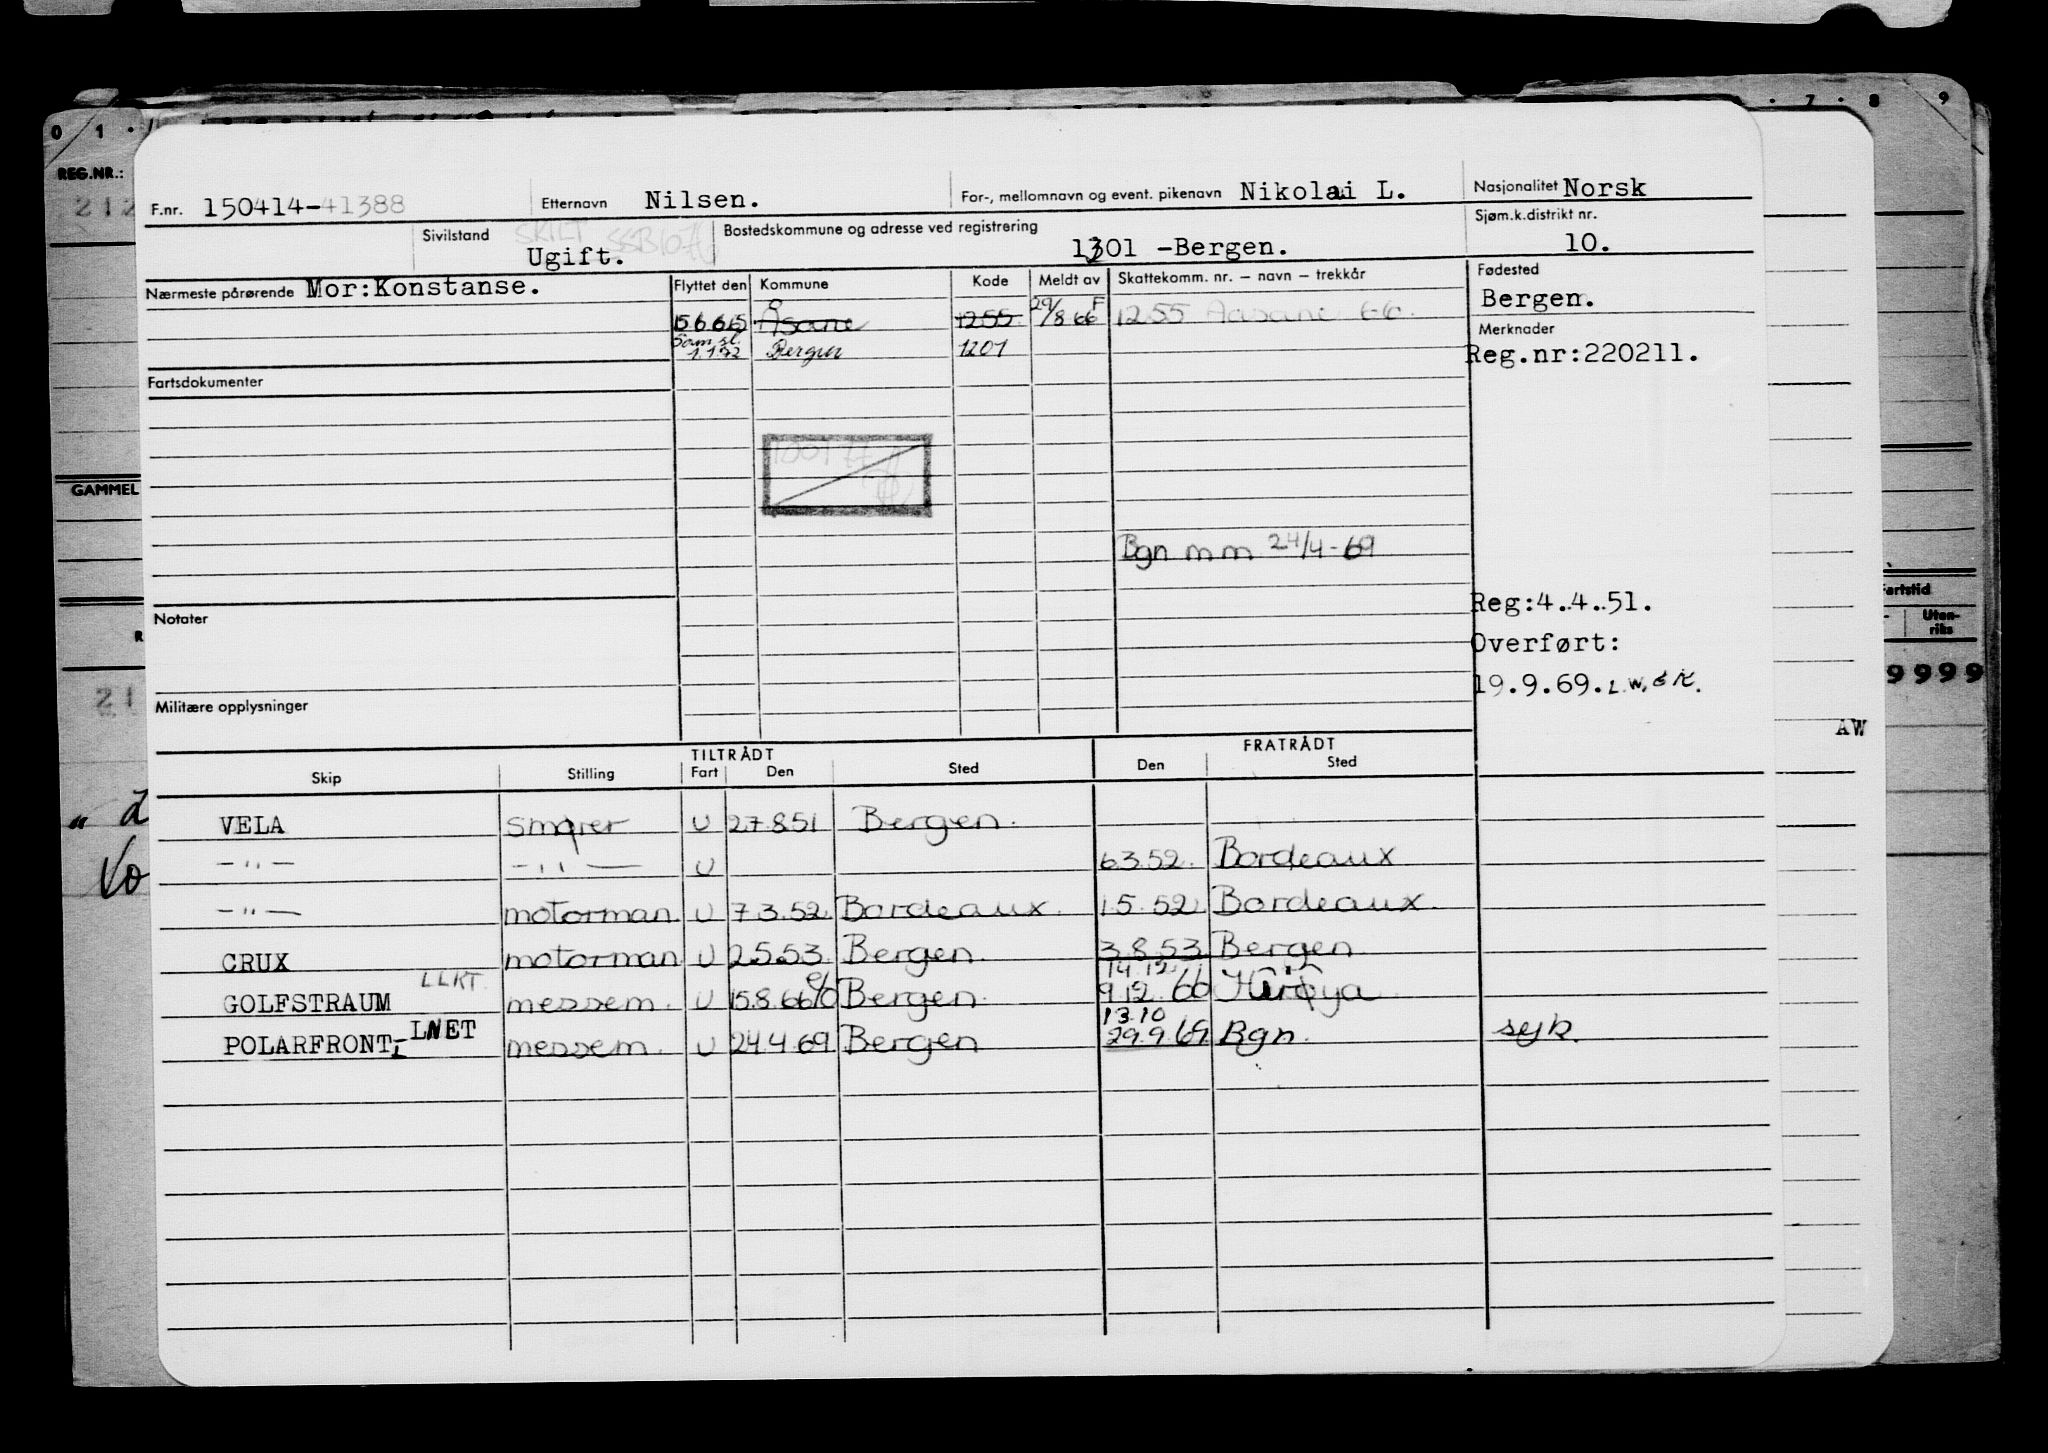 0 1 · 7 · 8 9
REG.NR.:
212
F.nr. 150414-41388 Etternavn Nilsen. For-, mellomnavn og event. pikenavn Nikolai L. Nasjonalitet Norsk
Sivilstand SKILT Ugift. Bostedskommune og adresse ved registrering 1301 -Bergen. Sjøm.k.distrikt nr. 10.
Nærmeste pårørende Mor:Konstanse. Flyttet den Kommune Kode Meldt av Skattekomm. nr. – navn – trekkår Fødested
Bergen.
15665 Åsane 1255 29/8 66 F 1255 Aasane 66
Merknader
Sam.sl. 1.1.72 Bergen 1201 Reg.nr:220211.
Fartsdokumenter
GAMMEL
Bgn m m 24/4-69
Notater
Reg:4.4.51.
Overført:
19.9.69. L.W, & K.
Militære opplysninger
artstid
Uten-
riks
9999
21
AW
TILTRÅDT FRATRÅDT
Skip Stilling Fart Den Sted Den Sted
VELA smører U 27.8.51 Bergen.
-"- -"- U 6.3.52. Bordeaux
-"- motorman U 7.3.52. Bordeaux. 1.5.52 Bordeaux.
CRUX motorman U 2.5.53. Bergen. 3.8.53 Bergen
LLKT. 14.12
GOLFSTRAUM messem. U 15.8.66 Bergen. 9.12.66 Herøya
13.10
POLARFRONT I -LNET messem. U 24.4.69 Bergen 29.9.69 Bgn. syk.